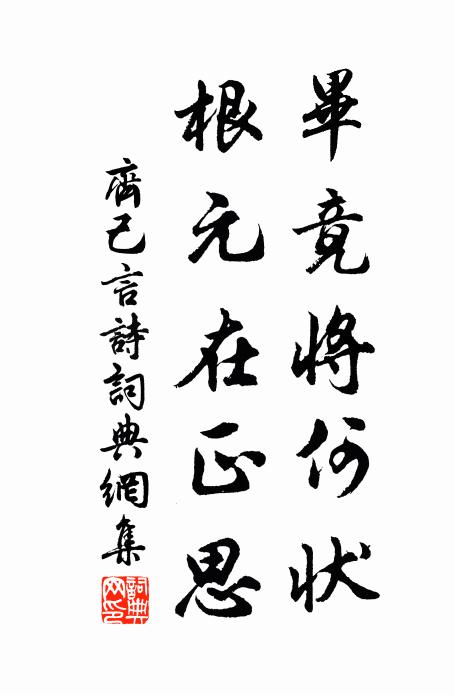 畢竟將何狀
根元在正思
齊己言詩詞典網集
詞典網印